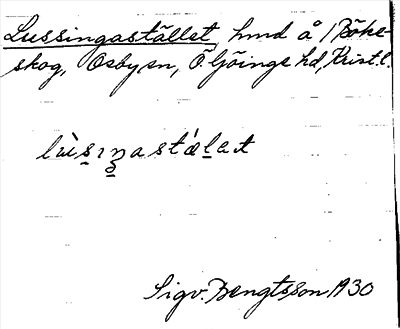 Lussingastället, hmd å 1 Böke-
skog, Osby sn, Ö. Göinge hd, Krist. l.
lùsiŋastǽlat
Sigv. Bengtsson 1930